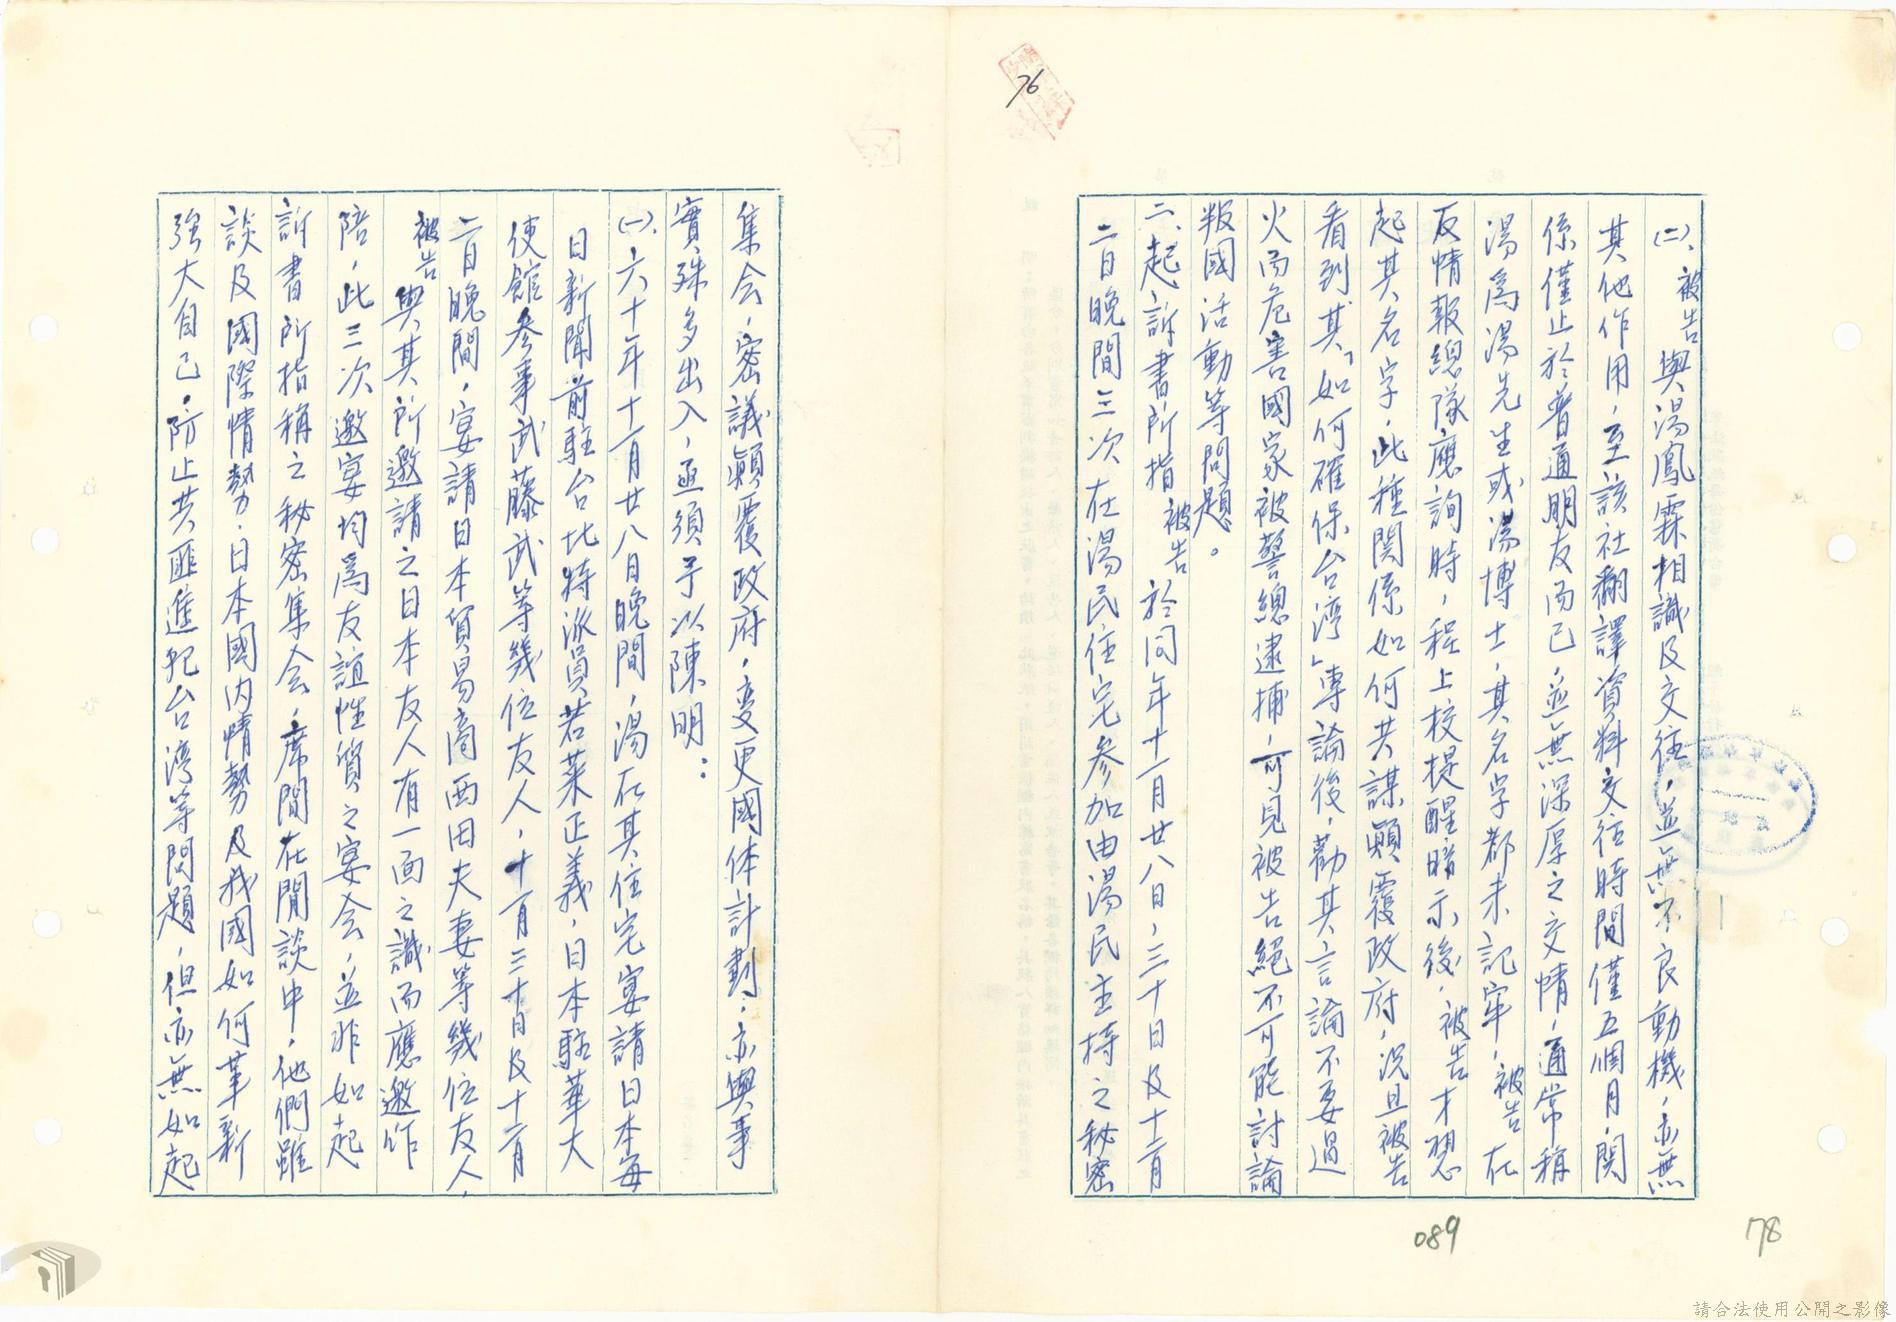 76
㈡、被告與湯鳳霖相識及交往，並無不良動機，亦無
其他作用，至該社翻譯資料交往時間僅五個月，関
係僅止於普通朋友而已，並無深厚之交情，通常稱
湯為湯先生或湯博士，其名字都未記牢，被告在
反情報總隊應詢時，程上校提醒暗示後，被告才想
起其名字，此種関係如何共謀顛覆政府，況且被告
看到其「如何確保台湾」專論後，勸其言論不要過
火而危害國家被警總逮捕，可見被告絕不可能討論
叛國活動等問題。
二、起訴書所指被告於同年十一月廿八日，三十日及十二月
二日晚間三次在湯民住宅参加由湯民主持之秘密
集会，密議顛覆政府，变更國体計劃，亦與事
實殊多出入，亟須予以陳明：
㈠、六十年十一月廿八日晚間，湯在其住宅宴請日本每
日新聞前駐台北特派員若菜正義，日本駐華大
使館参事武藤武等幾位友人，十一月三十日及十二月
二日晚間，宴請日本貿易商西田夫妻等幾位友人，
被告與其所邀請之日本友人有一面之識而應邀作
陪，此三次邀宴均為友誼性質之宴会，並非如起
訴書所指稱之秘密集会，席間在閒談中，他們雖
談及國際情勢，日本國内情勢及我國如何革新
強大自己，防止共匪進犯台湾等問題，但亦無如起
089
78
請合法使用公開之影像